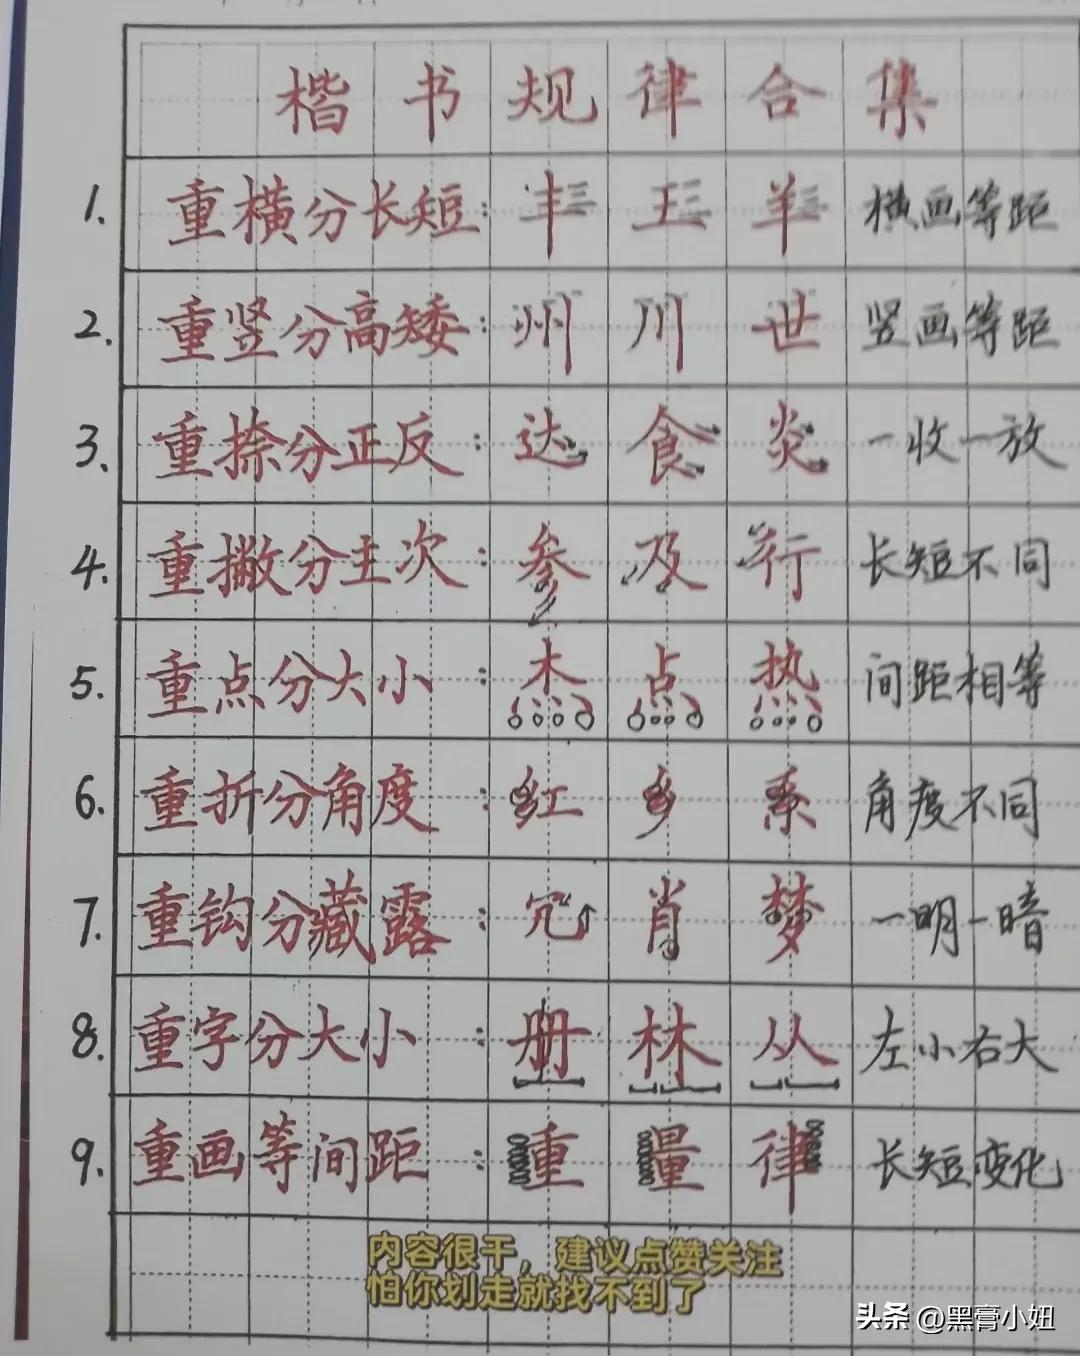 楷书规律合集
1. 重横分长短: 丰 王 羊 横画等距
2. 重竖分高矮: 州 川 世 竖画等距
3. 重捺分正反: 达 食 炎 一收一放
4. 重撇分主次: 参 及 行 长短不同
5. 重点分大小: 杰 点 热 间距相等
6. 重折分角度: 红 乡 系 角度不同
7. 重钩分藏露: 冗 肖 梦 一明一暗
8. 重字分大小: 册 林 从 左小右大
9. 重画等间距: 重 量 律 长短变化
内容很干，建议点赞关注
怕你划走就找不到了
头条 @黑膏小妞